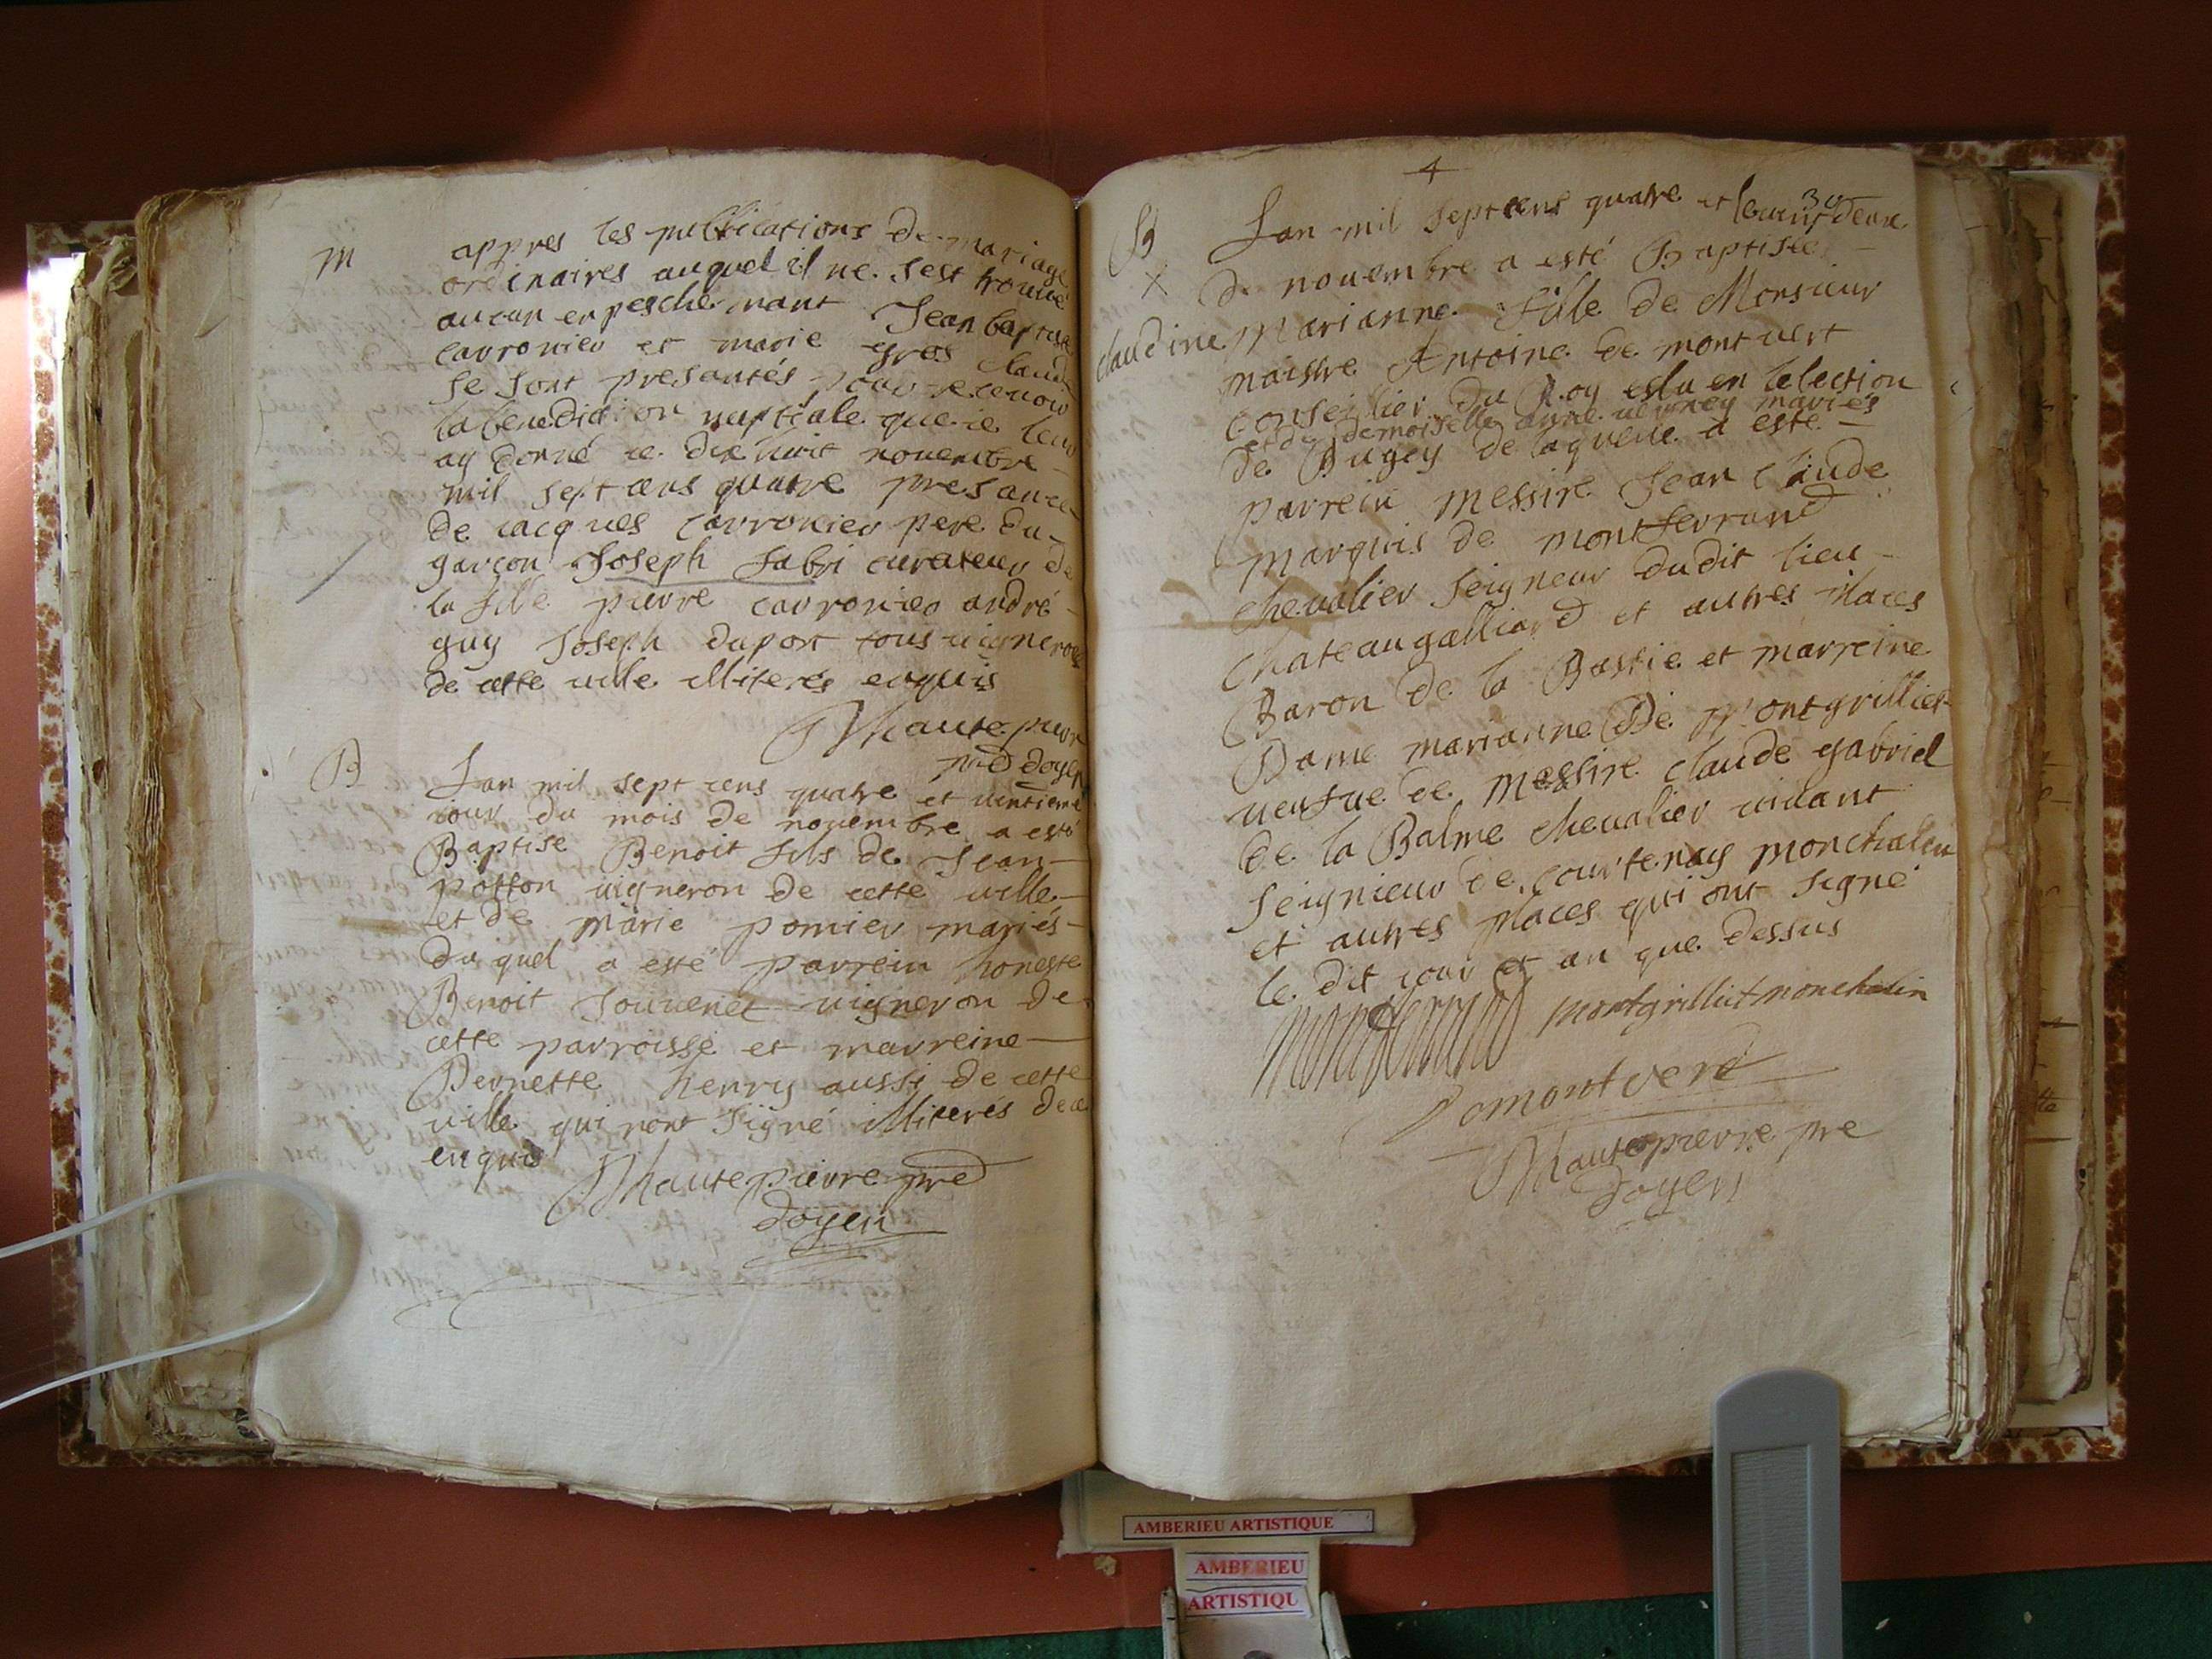 M
appres les publications de mariage
ordinaires auquel il ne sest trouué
aucun enpeschemant Jean baptiste
carronier et marie gros claude
se sont presantés pour receuoir
la benediction nuptiale que ie leur
ay donné ce dix huit nouembre
mil sept cens quatre presance
de iacques carronier pere du
garcon Joseph fabri curateur de
la fille pierre carronier andré
guy Joseph duport tous uignerons
de cette uille illiterés enquis
hautepierre
pre doyen
B
Lan mil sept cens quatre et uintieme
iour du mois de nouembre a esté
Baptise Benoit fils de Jean
potton uigneron de cette uille
et de marie pomier mariés
du quel a esté parrein honeste
Benoit Jouuenet uigneron de
cette parroisse et marreine
Pernette henry aussi de cette
uille qui nont signé illiterés de ce
enquis
hautepierre pre
doyen
4
30
B
Lan mil sept cens quatre et le deux
X
de nouembre a esté Baptisée
claudine Marianne fille de Monsieur
maistre Antoine de montuert
conseillier du Roy eslu en lelection
et de demoiselle anne mariés
de Bugey de laquelle a esté
parrein messire Jean claude
marquis de montferrand
cheualier seigneur dudit lieu
chateaugalliard et autres places
Baron de la Bastie et marreine
Dame marianne De Montgrillict
ueufue de messire claude gabriel
de la Balme cheualier uiuant
seignieur de courtenay monchalin
et autres places qui ont signé
le dit iour et an que dessus
montferrand montgrillict monchalin
Demontverd
hautepierre pre
doyen
AMBERIEU ARTISTIQUE
AMBERIEU
ARTISTIQU